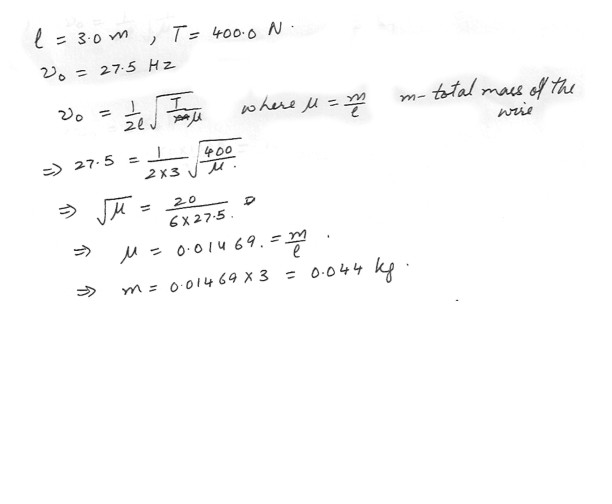 l = 3.0 m , T = 400.0 N.
ν₀ = 27.5 Hz
ν₀ = 1/2l √(T/μ) where μ = m/l m - total mass of the wire
⇒ 27.5 = 1/(2×3) √(400/μ).
⇒ √μ = 20/(6×27.5).
⇒ μ = 0.01469. = m/l .
⇒ m = 0.01469 × 3 = 0.044 kg.